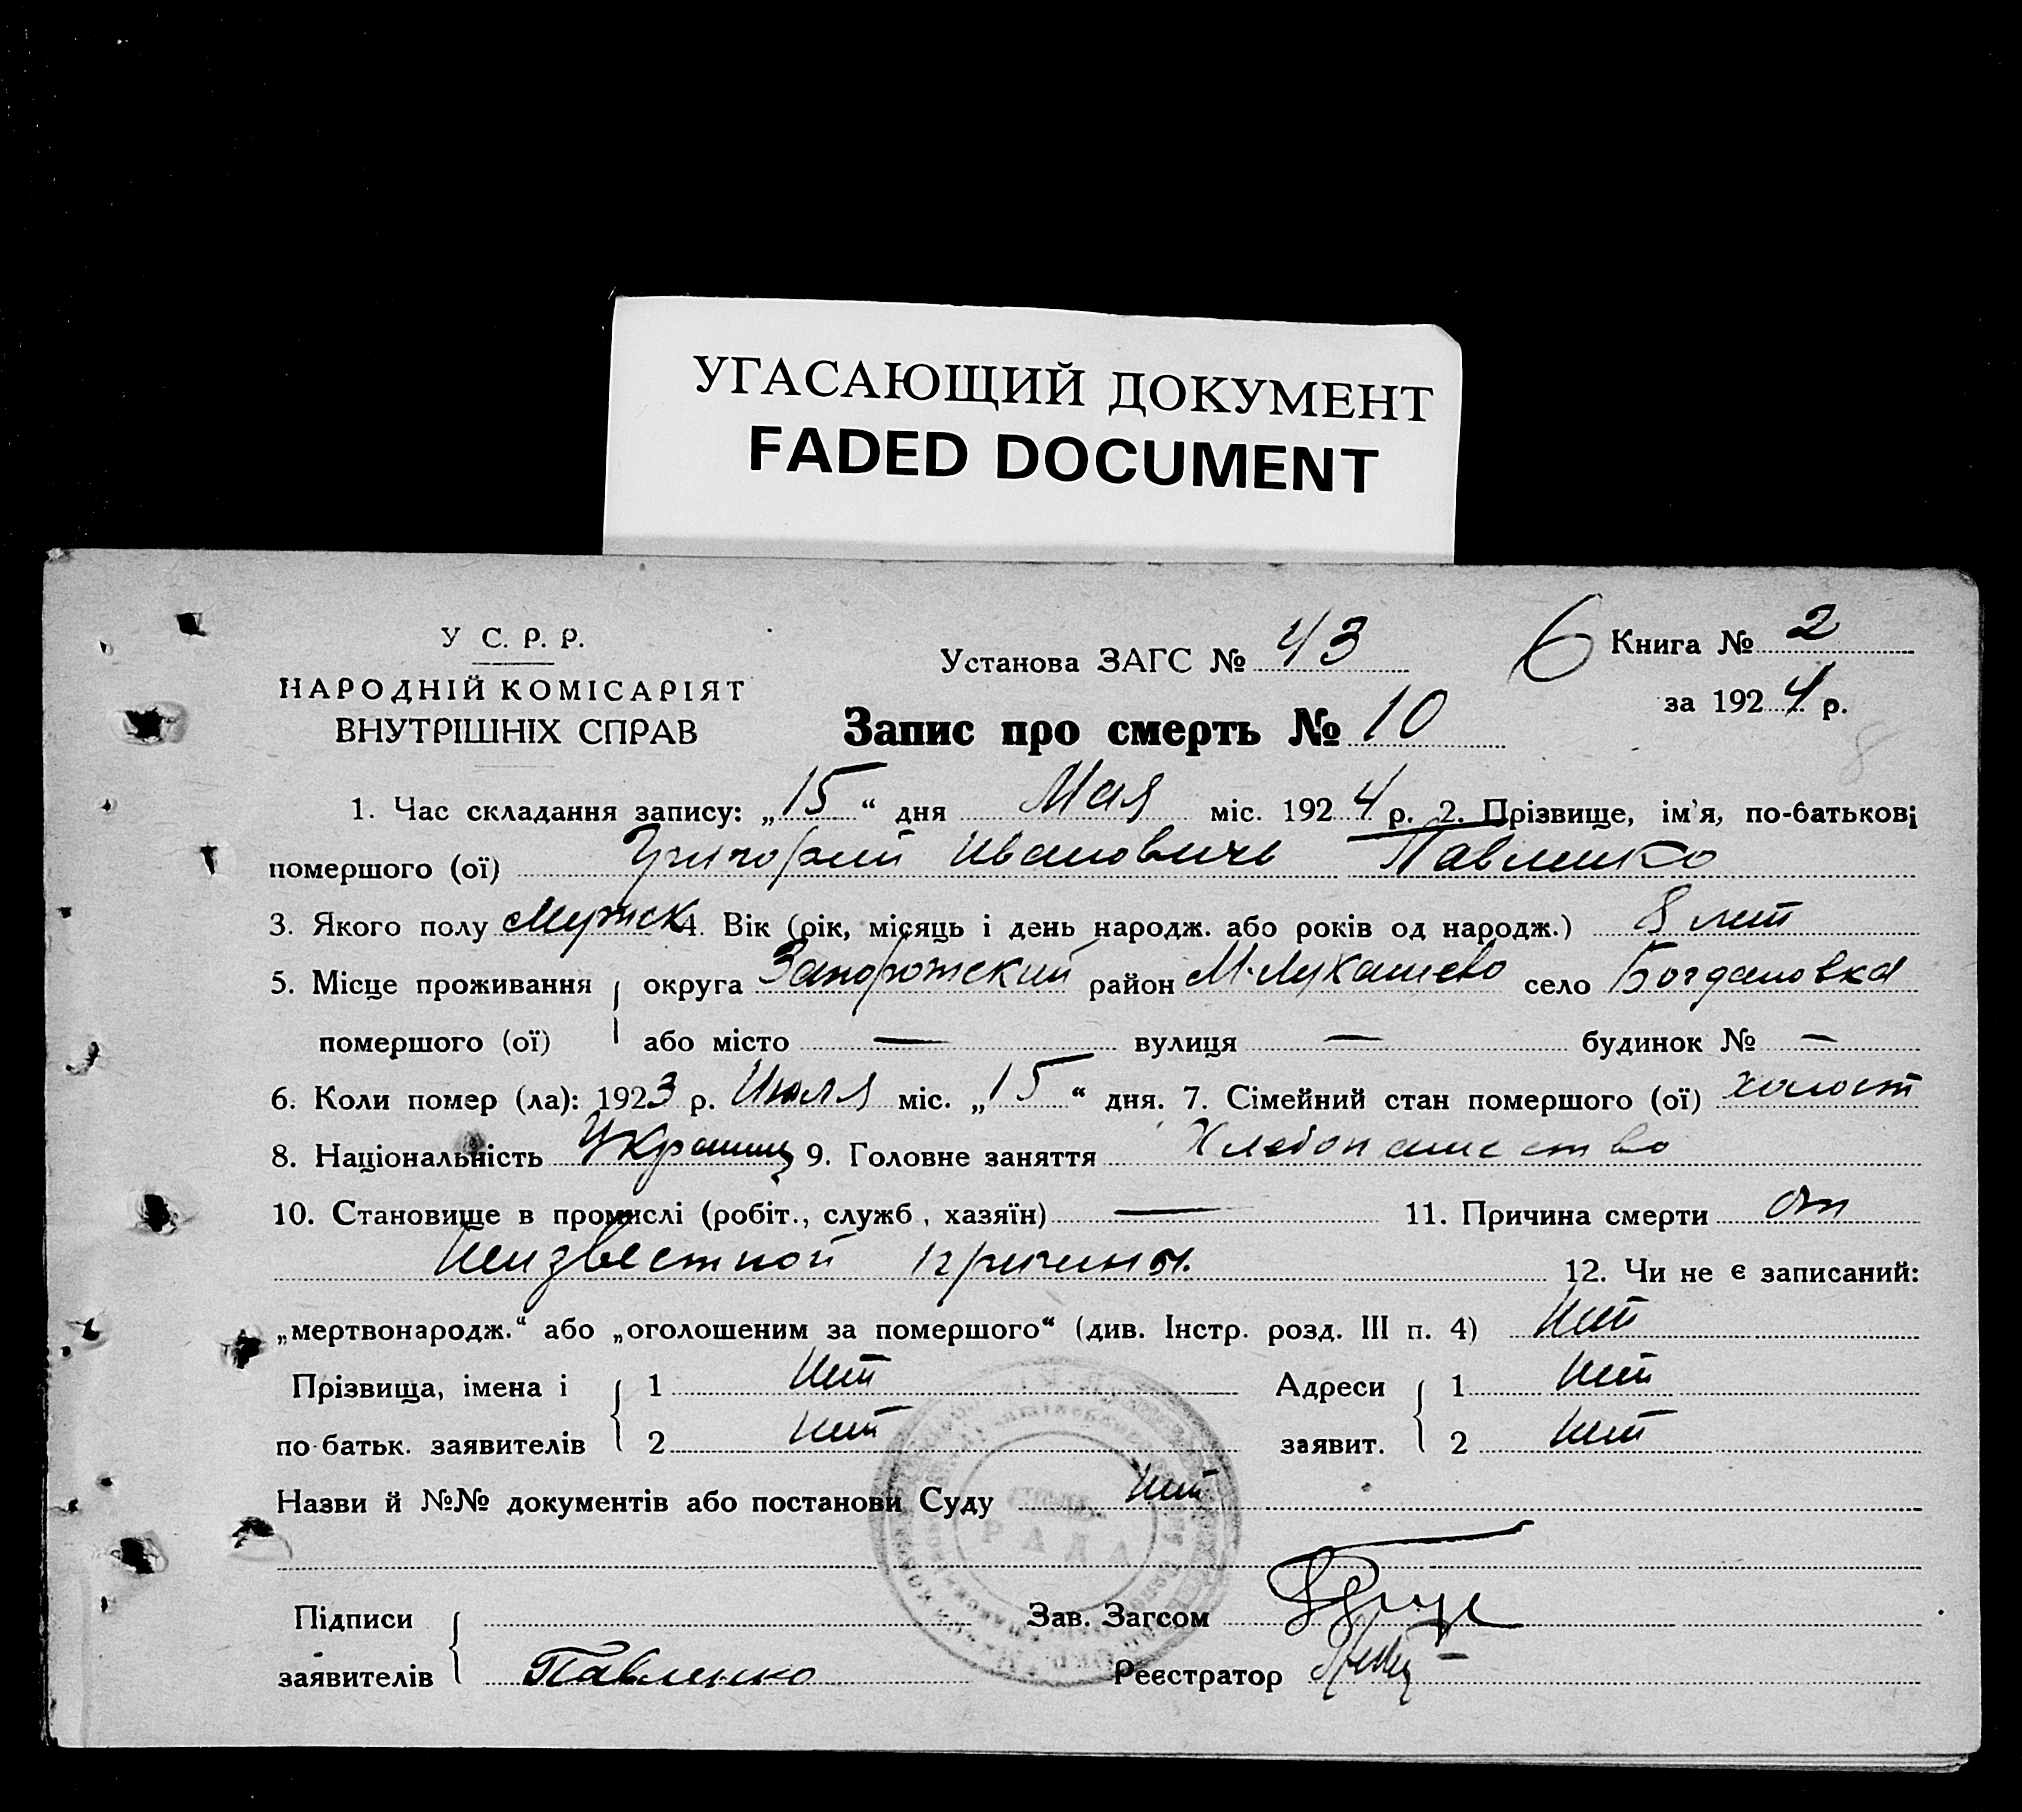 УГАСАЮЩИЙ ДОКУМЕНТ
FADED DOCUMENT
У С. Р. Р.
НАРОДНІЙ КОМІСАРІЯТ
ВНУТРІШНІХ СПРАВ
Установа ЗАГС № 43
6
Книга № 2
за 1924 р.
8
Запис про смерть № 10
1. Час складання запису: „15“ дня Мая міс. 1924 р. 2. Прізвище, ім'я, по-батькові
помершого (ої) Григорий Ивановичь Павленко
3. Якого полу Мужск 4. Вік (рік, місяць і день народж. або років од народж.) 8 лет
5. Місце проживання округа Запорожский район М-Лукашево село Богдановка
помершого (ої) або місто — вулиця — будинок № —
6. Коли помер (ла): 1923 р. Июля міс. „15“ дня. 7. Сімейний стан помершого (ої) холост
8. Національність Украинц 9. Головне заняття Хлебопашество
10. Становище в промислі (робіт., служб, хазяїн) — 11. Причина смерти от
Неизвестной причины.
12. Чи не є записаний:
„мертвонародж.“ або „оголошеним за помершого“ (див. Інстр. розд. III п. 4) Нет
Прізвища, імена і 1 Нет Адреси 1 Нет
по-батьк. заявителів 2 Нет заявит. 2 Нет
Назви й №№ документів або постанови Суду Нет
РАДА
Підписи Зав. Загсом
заявителів Павленко Реєстратор